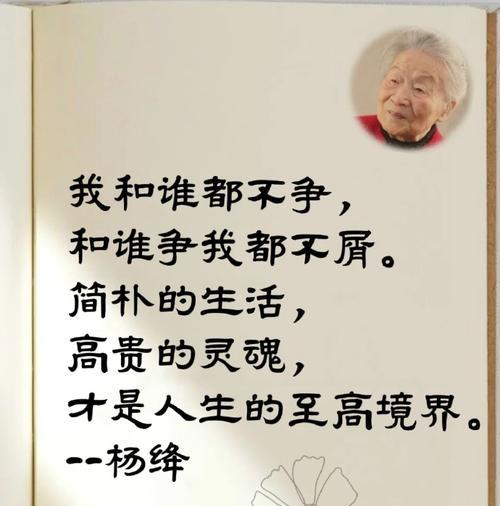 我和谁都不争，
和谁争我都不屑。
简朴的生活，
高贵的灵魂，
才是人生的至高境界。
--杨绛